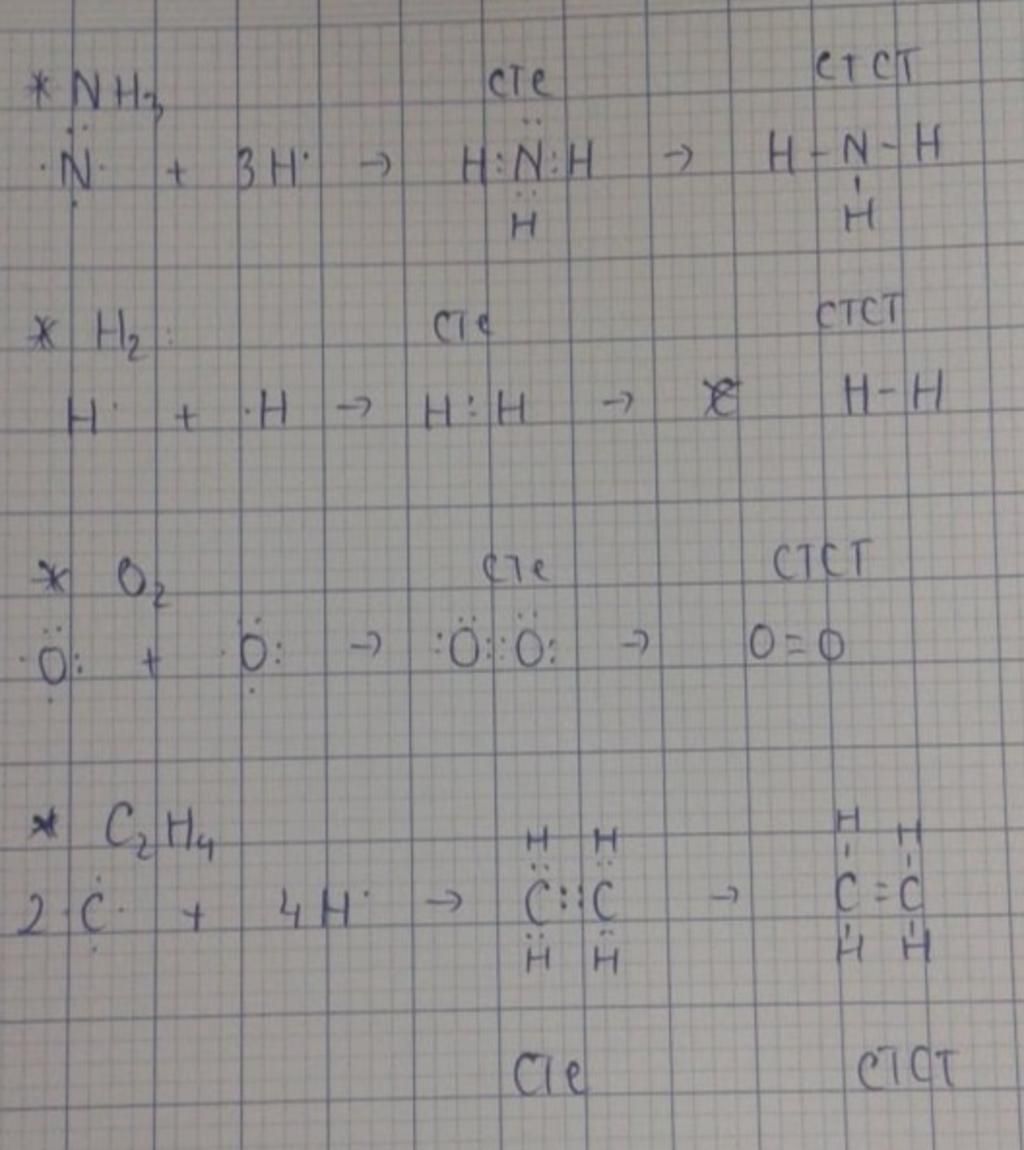 * NH₃ CTe CTCT
·N̈· + 3H· → H:N̈:H → H-N-H
H H
* H₂ : CTe CTCT
H· + ·H → H:H → H-H
* O₂ CTe CTCT
·Ö: + ·Ȯ: → :Ö::Ö: → O=O
* C₂H₄ H H H H
2 ·Ċ· + 4H· → C::C → C=C
H H H H
CTe CTCT